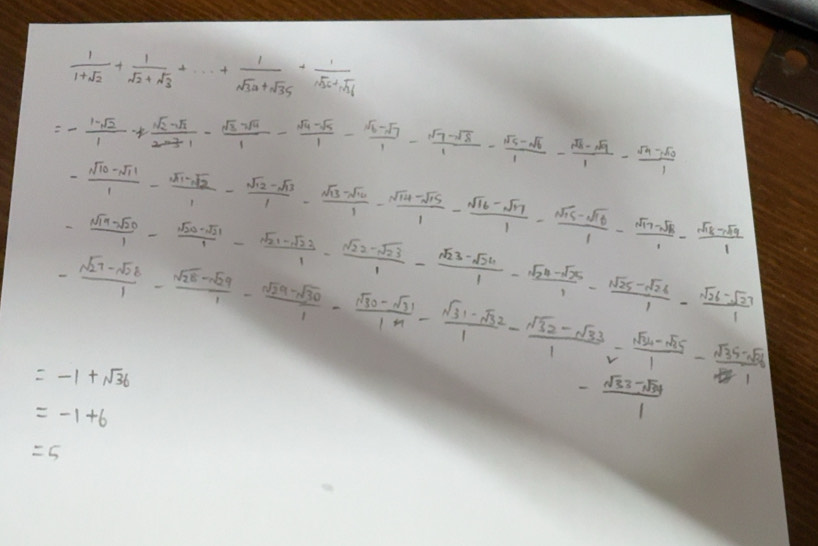 1/(1+√2) + 1/(√2+√3) + ... + 1/(√34+√35) + 1/(√35+√36)
= - (1-√2)/1 - (√2-√3)/1 - (√3-√4)/1 - (√4-√5)/1 - (√6-√7)/1 - (√7-√8)/1 - (√5-√6)/1 - (√8-√9)/1 - (√9-√10)/1
- (√10-√11)/1 - (√11-√12)/1 - (√12-√13)/1 - (√13-√14)/1 - (√14-√15)/1 - (√16-√17)/1 - (√15-√16)/1 - (√17-√18)/1 - (√18-√19)/1
- (√19-√20)/1 - (√20-√21)/1 - (√21-√22)/1 - (√22-√23)/1 - (√23-√24)/1 - (√24-√25)/1 - (√25-√26)/1 - (√26-√27)/1
- (√27-√28)/1 - (√28-√29)/1 - (√29-√30)/1 - (√30-√31)/1 - (√31-√32)/1 - (√32-√33)/1 - (√34-√35)/1 - (√35-√36)/1
- (√33-√34)/1
= -1+√36
= -1+6
= 5